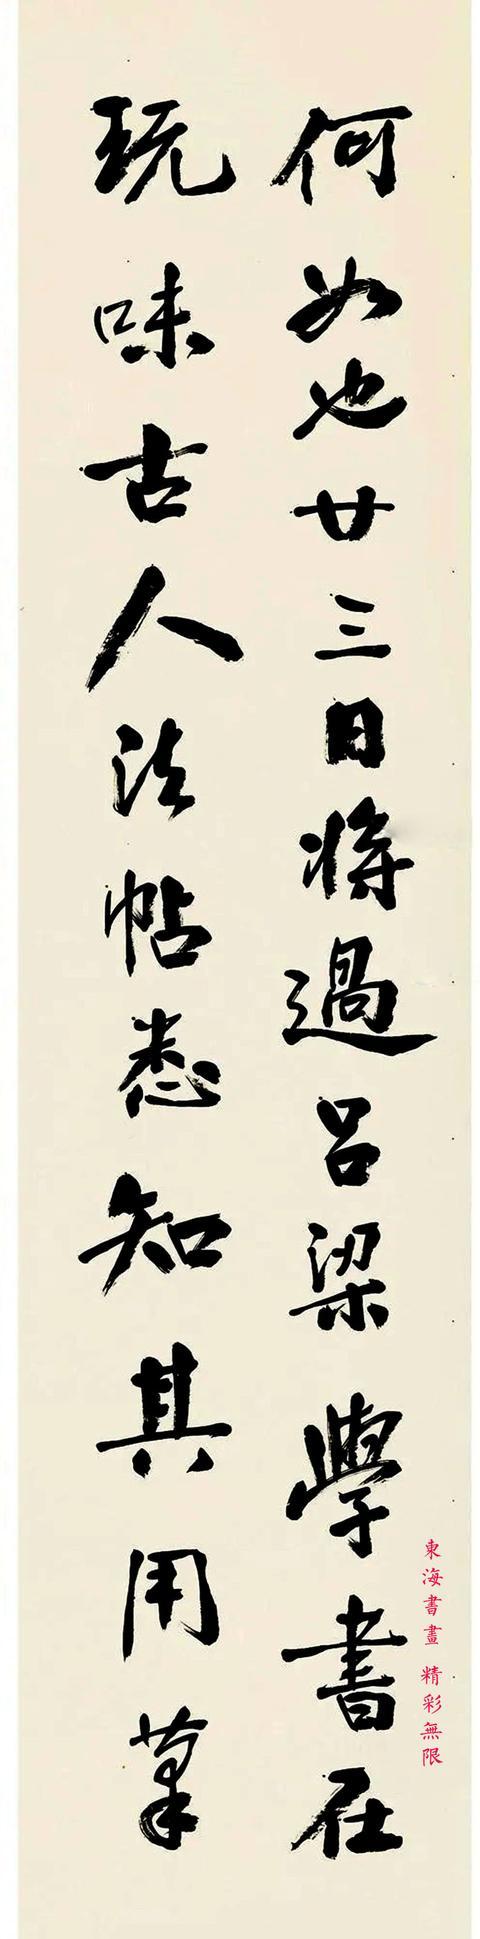 何如也廿三日將過呂梁學書在
玩味古人法帖悉知其用筆
東海書畫 精彩無限